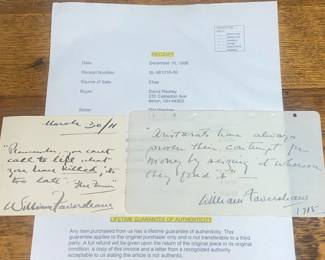 RECEIPT
Date: December 10, 1998
Receipt Number:
Source of Sale: Ebay
Buyer: David Rackey
March 30/11
"Remember, you can't
call to life what
you have killed, it's
too late -
William Faversham
"Aristocrats have always
proven their contempt for
money by seizing it wherever
they find it"
William Faversham
1915
LIFETIME GUARANTEE OF AUTHENTICITY
Any item purchased from us has a lifetime guarantee of authenticity. This
guarantee applies to the original purchaser only and is not transferable to a third
party. A full refund will be given upon the return of the original piece in its original
condition, a copy of this invoice and a letter from a recognized authority
acceptable to us stating the article is not authentic.